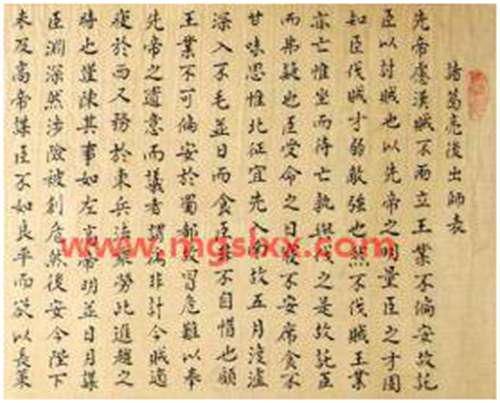 諸葛亮後出師表
先帝慮漢賊不兩立王業不偏安故託
臣以討賊也以先帝之明量臣之才固
知臣伐賊才弱敵強也然不伐賊王業
亦亡惟坐而待亡孰與伐之是故託臣
而弗疑也臣受命之日寢不安席食不
甘味思惟北征宜先入南故五月渡瀘
深入不毛並日而食臣非不自惜也顧
王業不可偏安於蜀都故冒危難以奉
先帝之遺意而議者謂為非計今賊適
疲於西又務於東兵法乘勞此進趨之
時也謹陳其事如左高帝明並日月謀
臣淵深然涉險被創危然後安今陛下
未及高帝謀臣不如良平而欲以長策
www.mgslxx.com